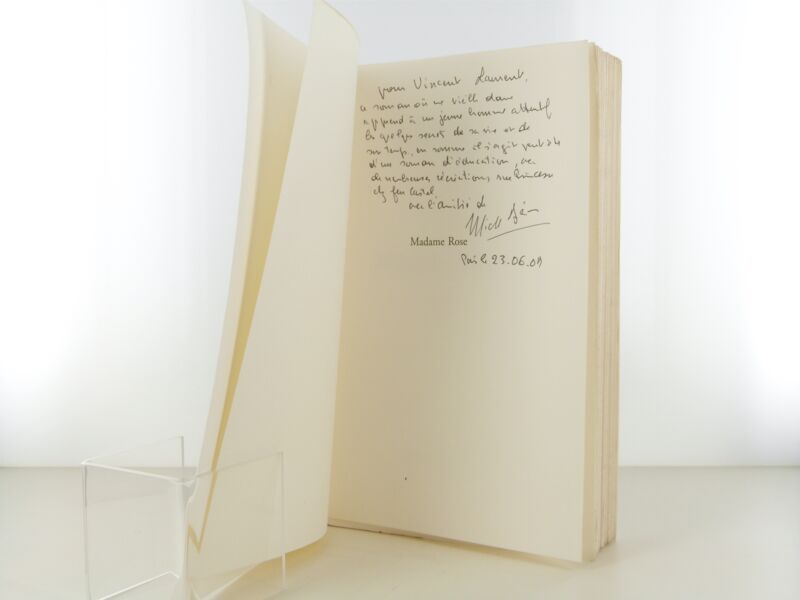 pour Vincent Laurent,
ce roman où une vieille dame
apprend à un jeune homme attentif
les quelques secrets de sa vie et de
son temps, en somme il s'agit peut-être
d'un roman d'éducation, avec
de nombreuses récréations
chez feu
avec l'amitié de
Madame Rose
Paris le 23.06.09